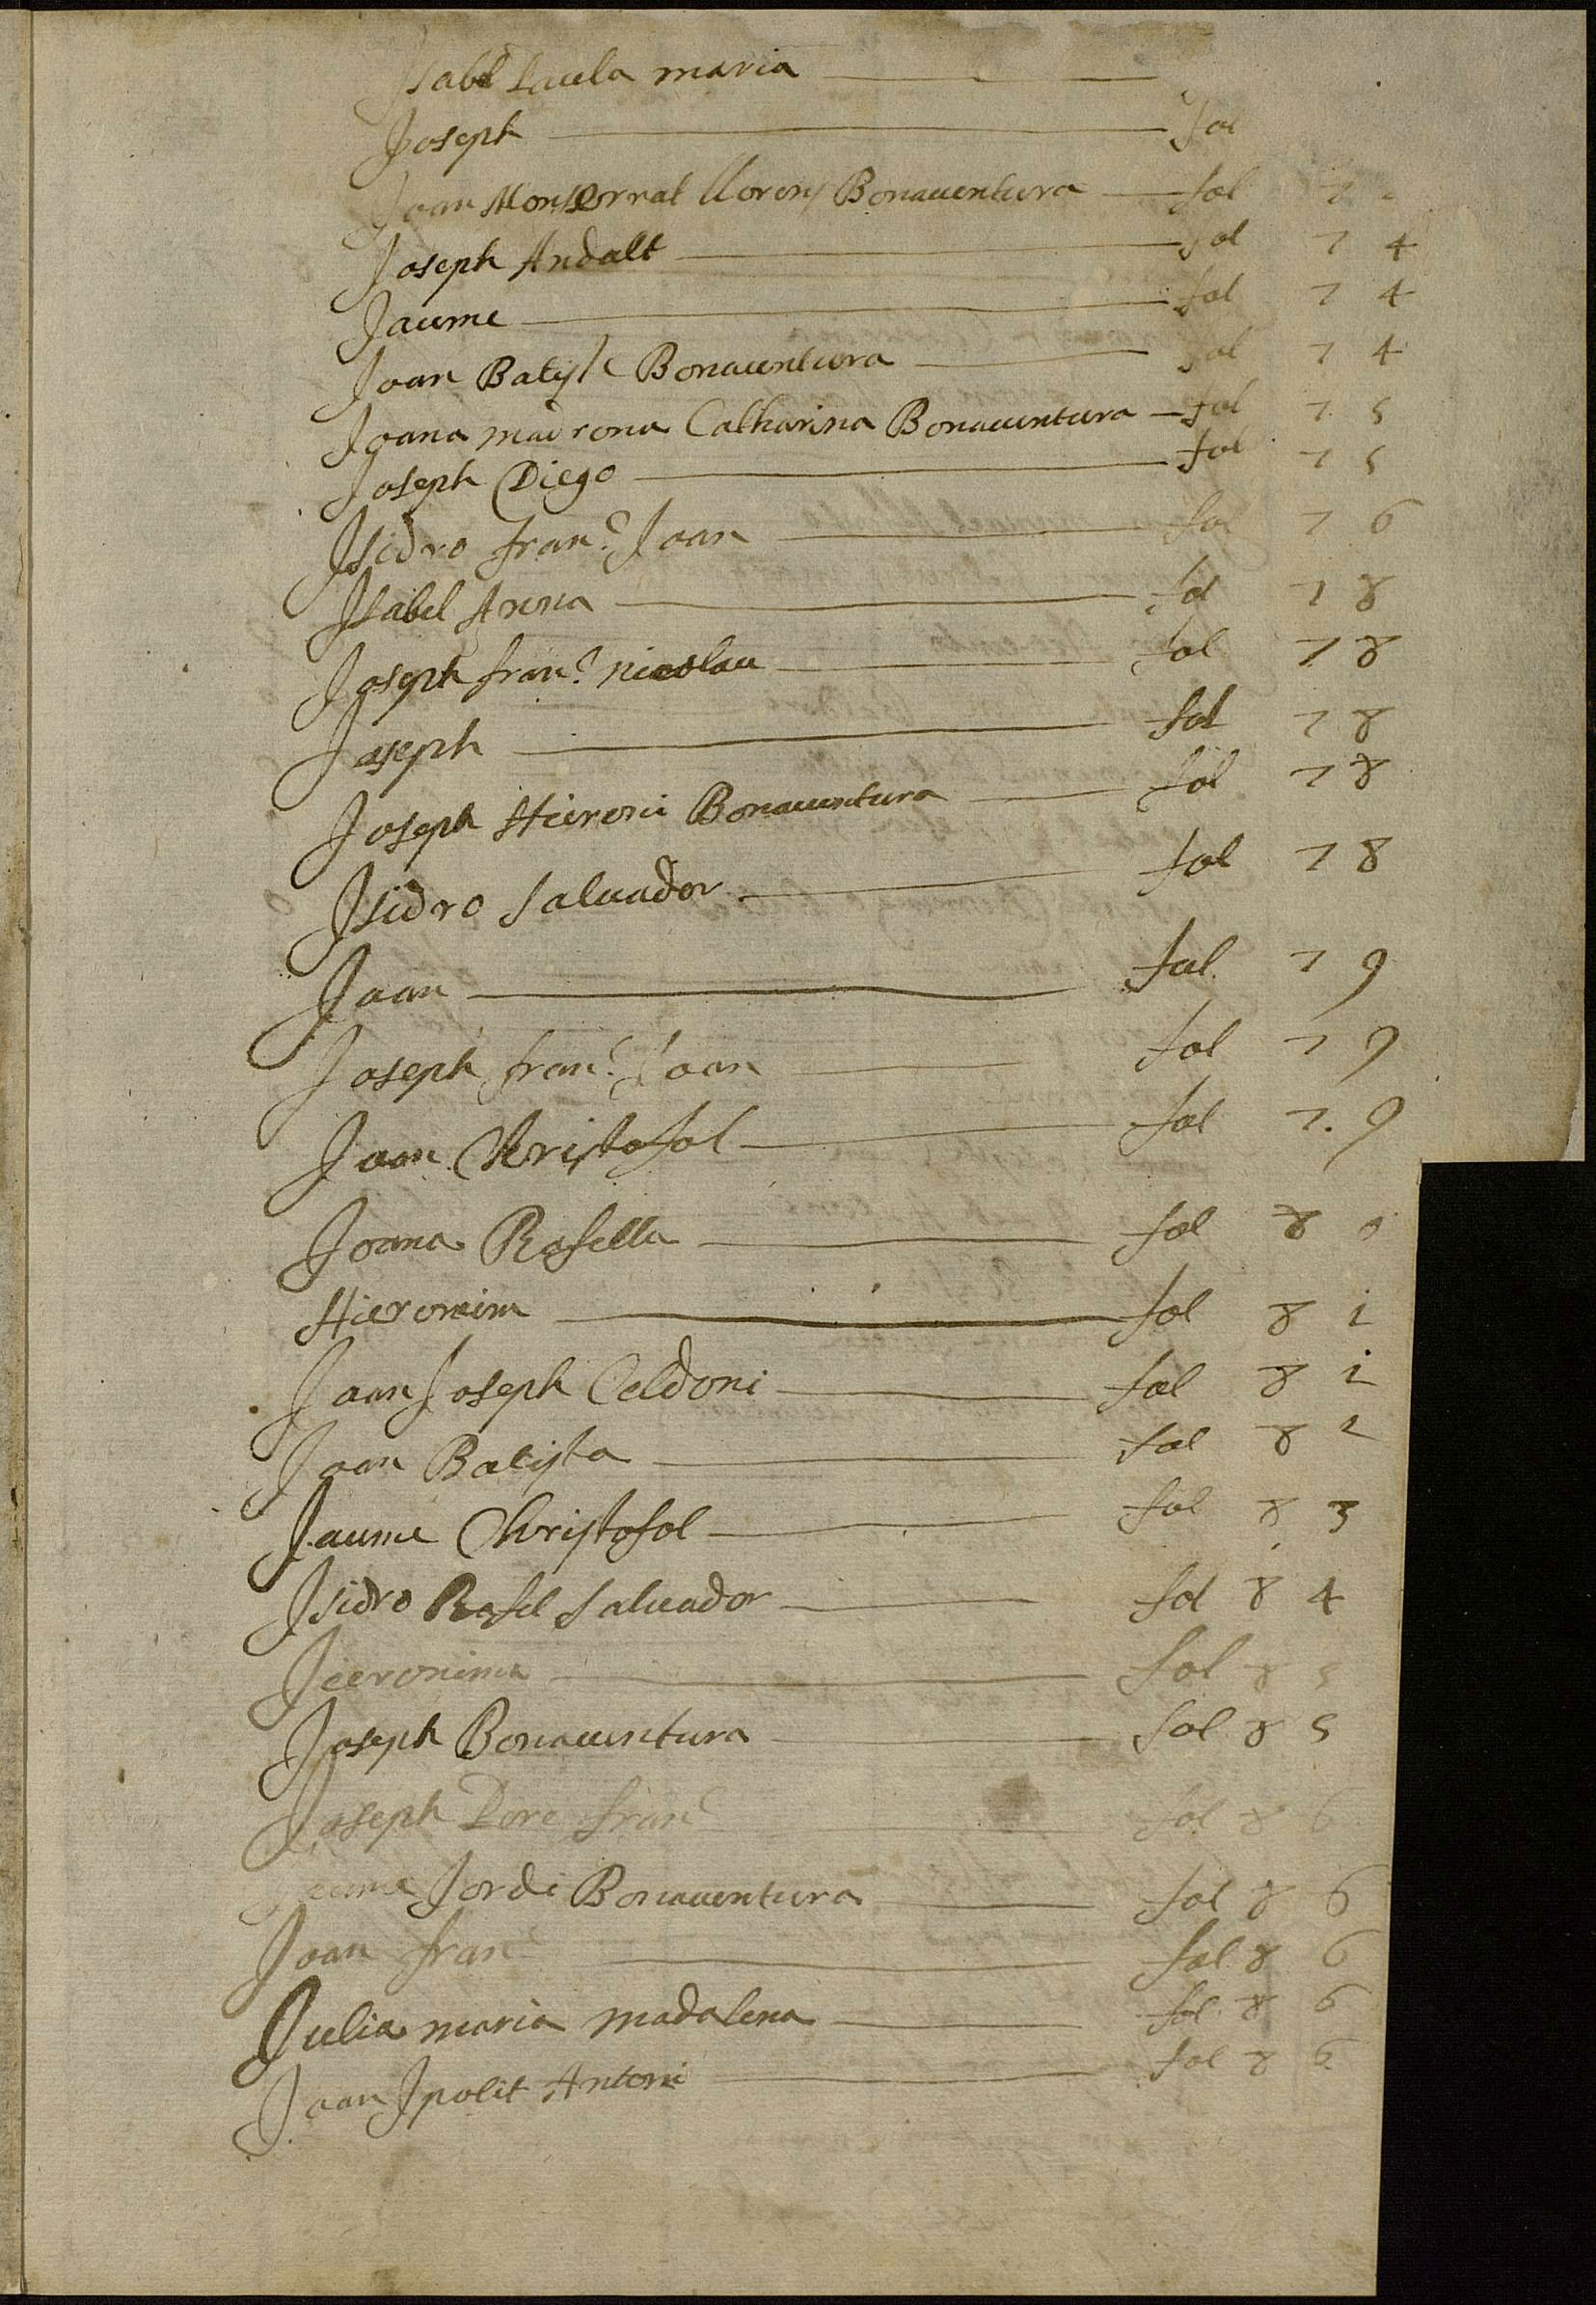 Isabel Paula maria
Joseph fol
Joan Monserrat llorens Bonauentura fol 7
Joseph Andalt fol 7 4
Jaume fol 7 4
Joan Batiste Bonauentura fol 7 4
Joana madrona Catharina Bonauentura fol 7 5
Joseph Diego fol 7 5
Isidro fran.c Joan fol 7 6
Isabel Anna fol 7 8
Joseph fran.c nicolau fol 7 8
Joseph fol 7 8
Joseph Hieroni Bonauentura fol 7 8
Isidro Saluador fol 7 8
Joan fol 7 9
Joseph fran.c Joan fol 7 9
Joan Christofol fol 7 9
Joana Rafella fol 8 0
Hieronim fol 8 i
Joan Joseph Celdoni fol 8 2
Joan Batista fol 8 2
Jaume Christofol fol 8 3
Isidro Rafel Saluador fol 8 4
Jeeronima fol 8 5
Joseph Bonauentura fol 8 5
Joseph Pere fran.c fol 8 6
Jaume Jordi Bonauentura fol 8 6
Joan fran.c fol 8 6
Julia maria madalena fol 8 6
Joan Ipolit Antoni fol 8 6